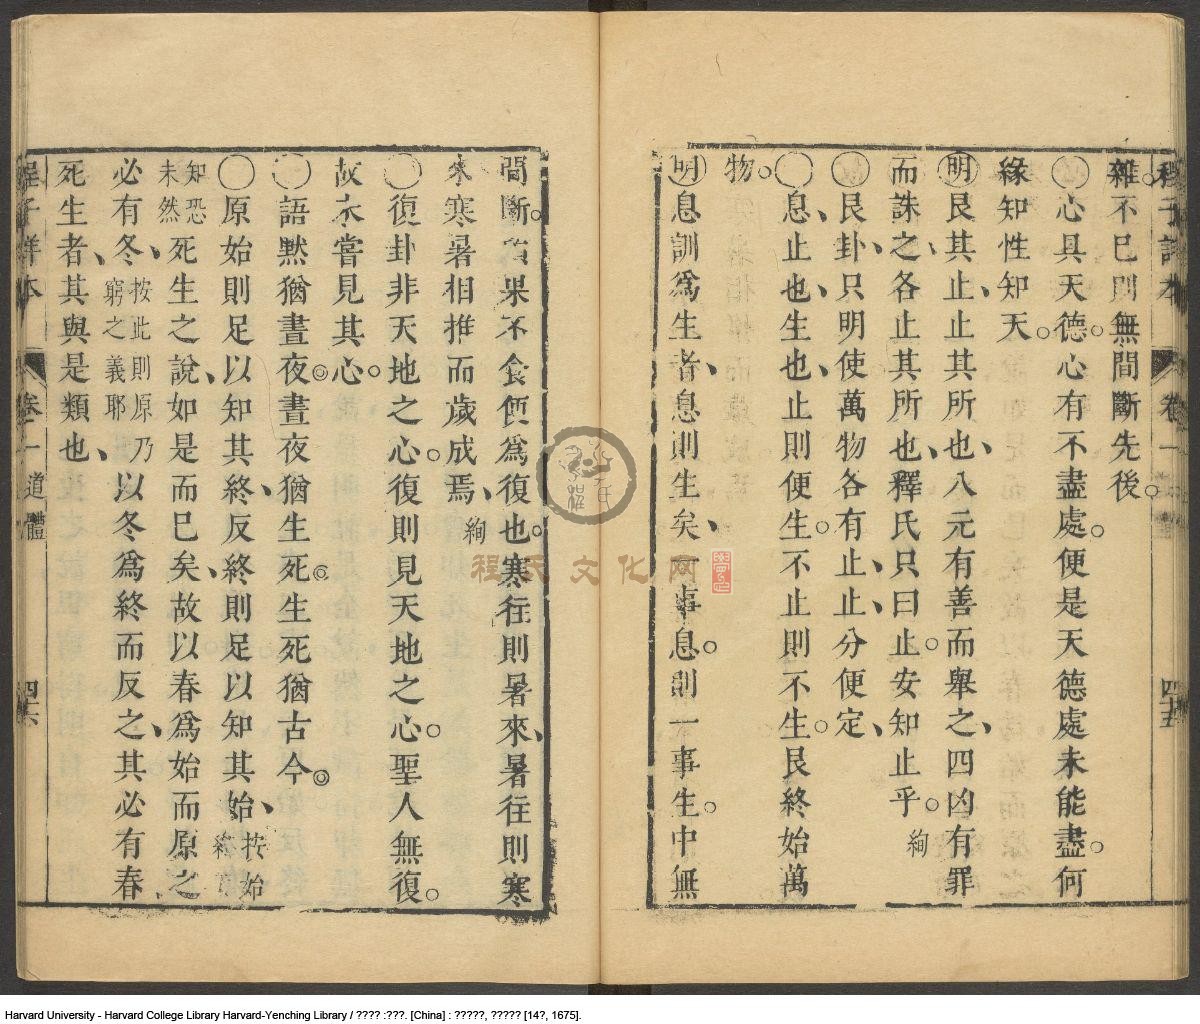 程子詳本 卷一 四十五
雜不已則無間斷先後
○心具天德心有不盡處便是天德處未能盡何
緣知性知天
明艮其止止其所也八元有善而舉之四凶有罪
而誅之各止其所也釋氏只曰止安知止乎 絢
○艮卦只明使萬物各有止止分便定
○息止也生也止則便生不止則不生艮終始萬
物
明息訓為生者息則生矣一事息則一事生中無
間斷碩果不食便為復也寒往則暑來暑往則寒
來寒暑相推而歲成焉 絢
○復卦非天地之心復則見天地之心聖人無復
故未嘗見其心
○語默猶晝夜晝夜猶生死生死猶古今
○原始則足以知其終反終則足以知其始 按始終
知恐未然 死生之說如是而已矣故以春為始而原之
必有冬 按此則原乃窮之義耶 以冬為終而反之其必有春
死生者其與是類也
程子詳本 卷一 道體 四十六
程氏文化网
Harvard University - Harvard College Library Harvard-Yenching Library / ???? :???. [China] : ?????, ????? [14?, 1675].